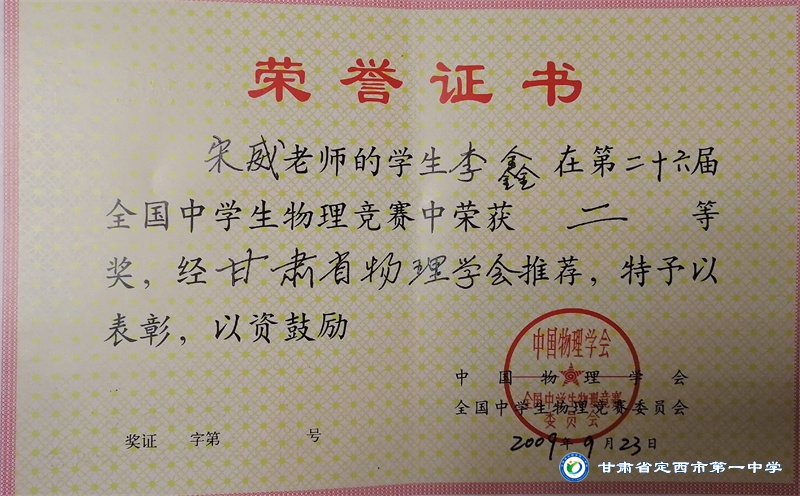 荣誉证书
宋威老师的学生李鑫在第二十六届
全国中学生物理竞赛中荣获 二 等
奖，经甘肃省物理学会推荐，特予以
表彰，以资鼓励
中国物理学会
全国中学生物理竞赛
委员会
中国物理学会
全国中学生物理竞赛委员会
奖证 字第 号
2009年9月23日
甘肃省定西市第一中学